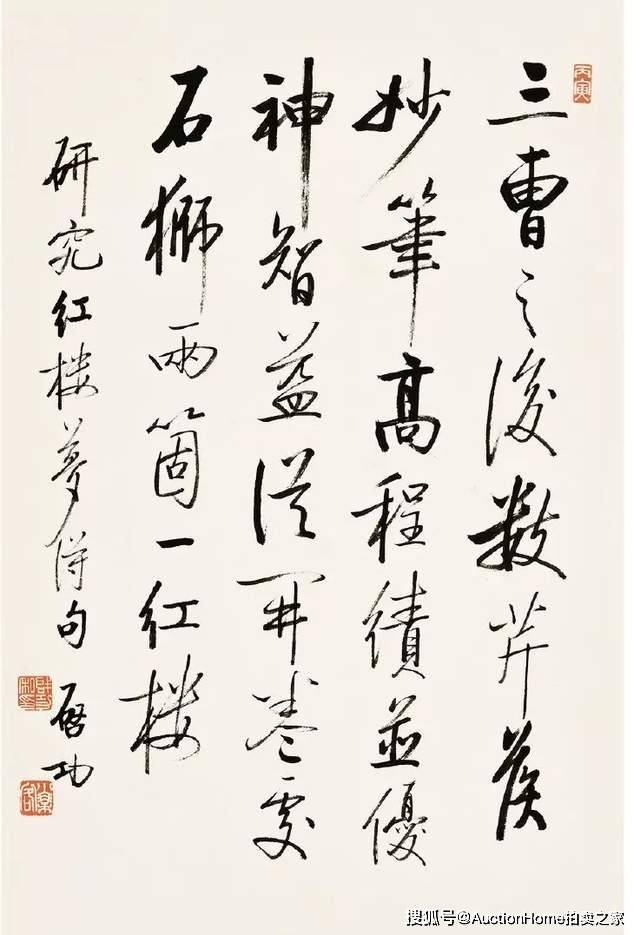 丙寅
三曹之後数芹侯
妙筆高程績並優
神智益從開卷處
石獅兩箇一红楼
研究红楼夢得句
啓功
搜狐号@AuctionHome拍卖之家